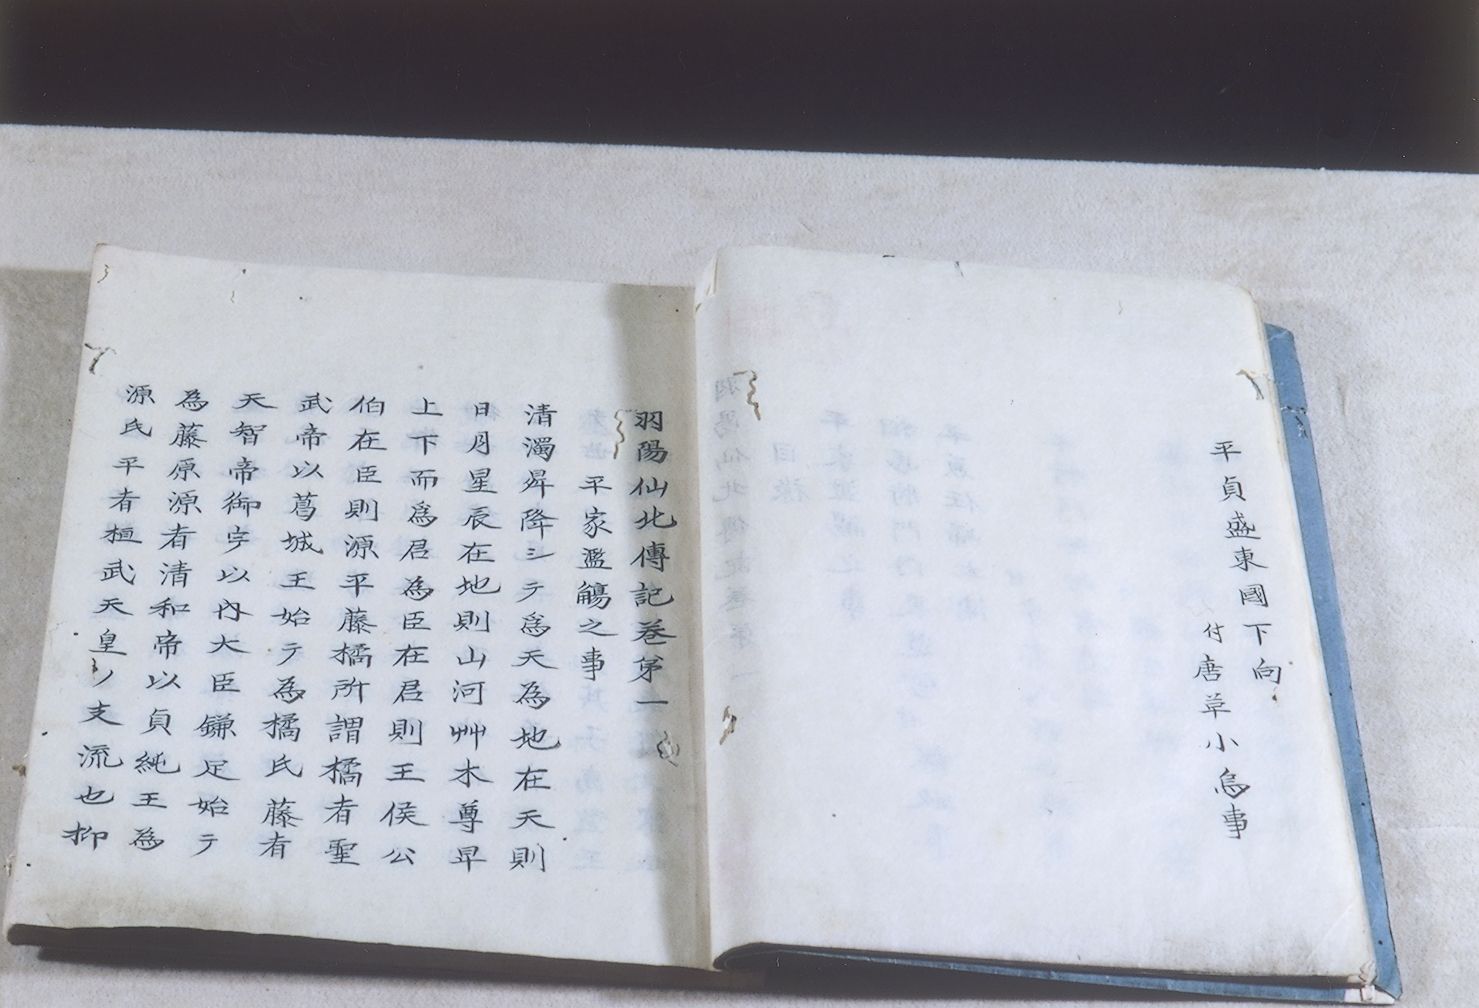 平貞盛東國下向
付唐草小烏事
羽陽仙北傳記卷第一
平家濫觴之事
清濁昇降シテ爲天為地在天則
日月星辰在地則山河艸木尊卑
上下而爲君為臣在君則王侯公
伯在臣則源平藤橘所謂橘者聖
武帝以葛城王始テ為橘氏藤者
天智帝御宇以内大臣鎌足始テ
為藤原源者清和帝以貞純王為
源氏平者桓武天皇ノ支流也抑